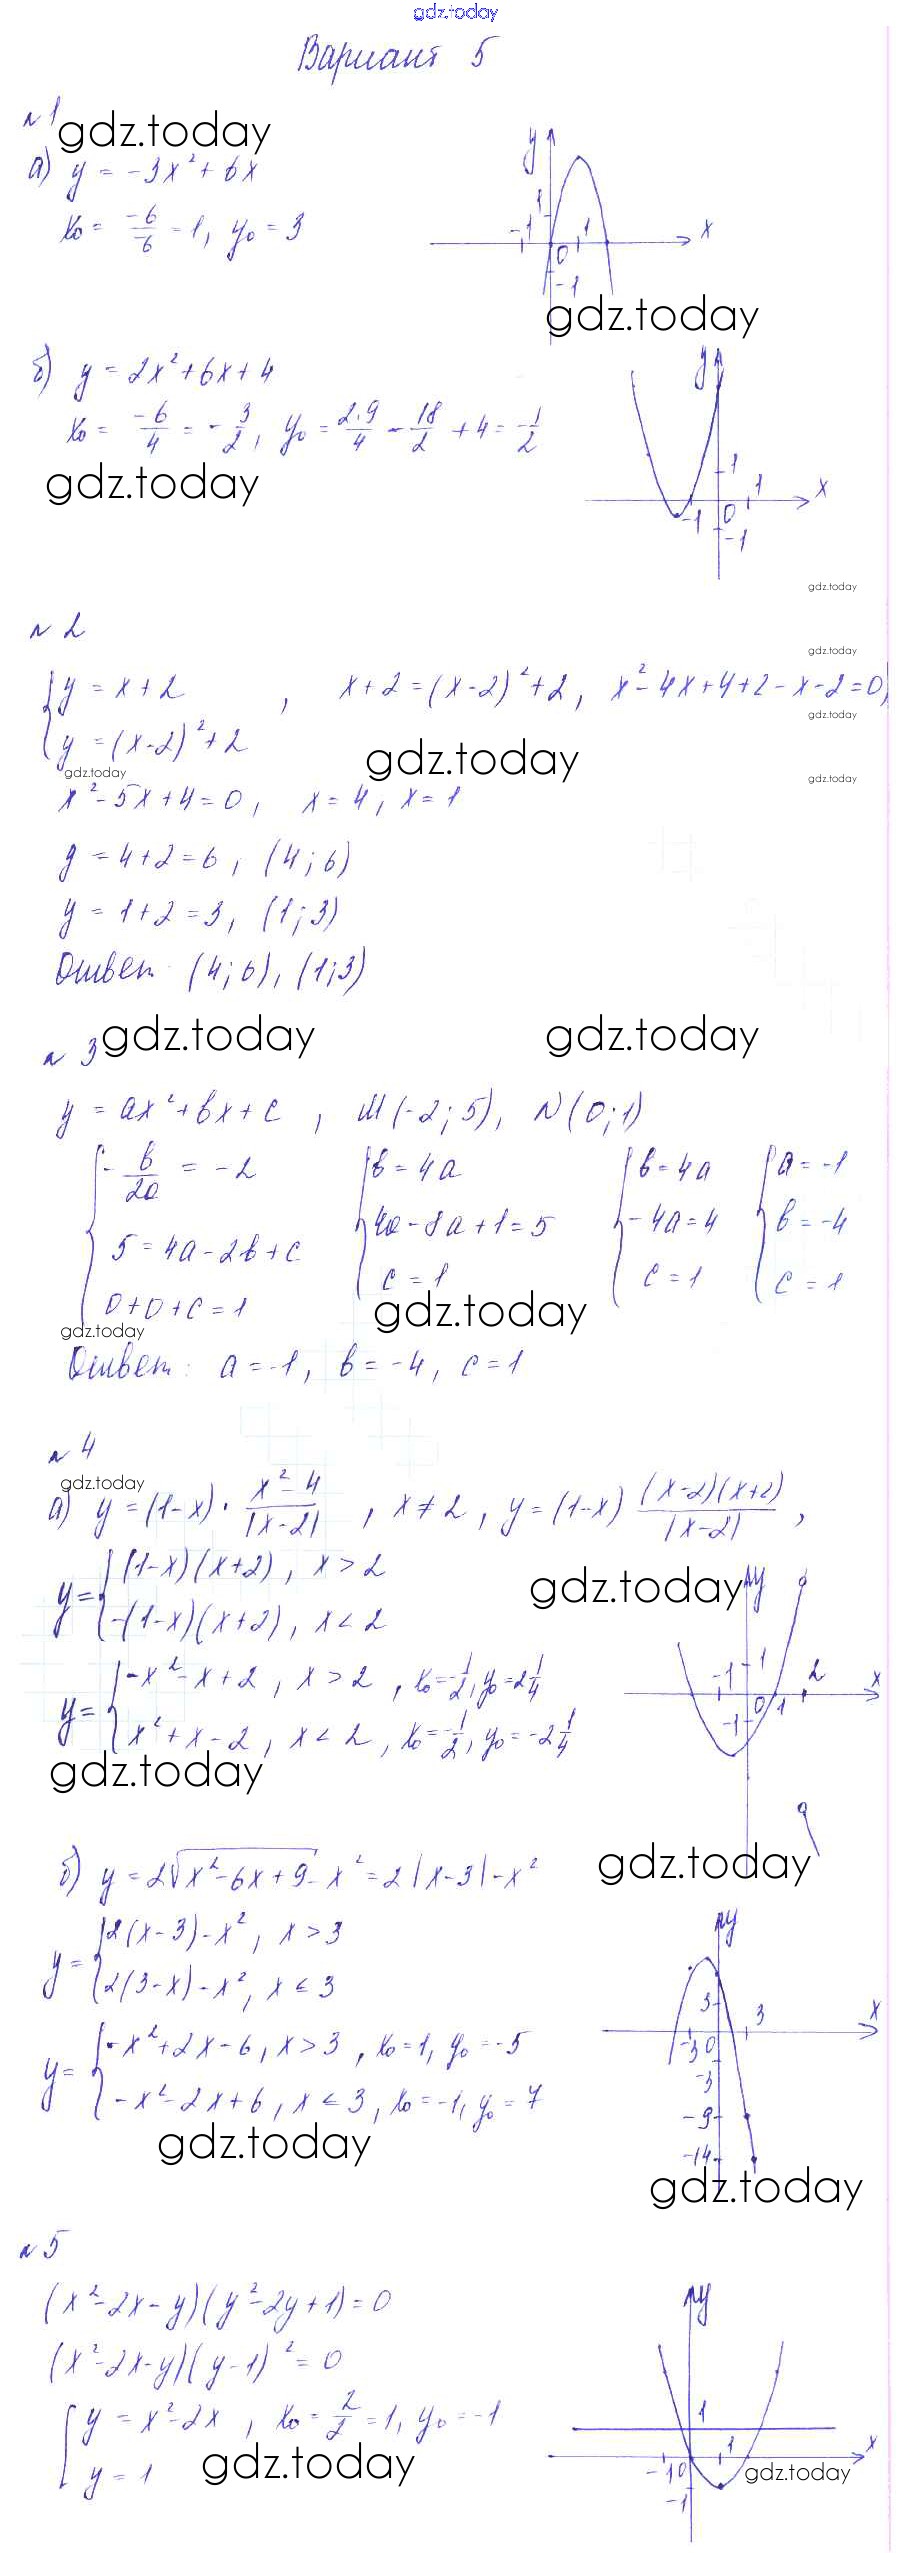 gdz.today
Вариант 5
№1
gdz.today
а) y = -3x² + 6x
x₀ = -6/-6 = 1, y₀ = 3
y
1
-1 0 1 x
-1
gdz.today
б) y = 2x² + 6x + 4
x₀ = -6/4 = -3/2, y₀ = 2·9/4 - 18/2 + 4 = -1/2
gdz.today
y
1 1 x
-1 0
-1
gdz.today
№2
gdz.today
{y = x+2, x+2 = (x-2)²+2, x²-4x+4+2-x-2=0,
gdz.today
{y = (x-2)²+2
gdz.today
gdz.today
gdz.today
x²-5x+4=0, x=4, x=1
y = 4+2=6, (4;6)
y = 1+2=3, (1;3)
Ответ: (4;6), (1;3)
gdz.today gdz.today
№3
y = ax²+bx+c, M(-2;5), N(0;1)
{-b/2a = -2 {b=4a {b=4a {a=-1
{5=4a-2b+c {4a-8a+1=5 {-4a=4 {b=-4
{0+0+c=1 {c=1 {c=1 {c=1
gdz.today
gdz.today
Ответ: a=-1, b=-4, c=1
№4
gdz.today
а) y=(1-x)·(x²-4)/|x-2|, x≠2, y=(1-x)(x-2)(x+2)/|x-2|,
y={(1-x)(x+2), x>2
{-(1-x)(x+2), x<2
gdz.today
y
y={-x²-x+2, x>2, x₀=-1/2, y₀=2 1/4
{x²+x-2, x<2, x₀=-1/2, y₀=-2 1/4
-1 1 2 x
0 1
-1
gdz.today
gdz.today
б) y=2√x²-6x+9 - x²=2|x-3|-x²
y={2(x-3)-x², x>3
{2(3-x)-x², x≤3
y={-x²+2x-6, x>3, x₀=1, y₀=-5
{-x²-2x+6, x≤3, x₀=-1, y₀=7
y
3 3 x
-3 0
-3
-9
-14
gdz.today
gdz.today
№5
(x²-2x-y)(y²-2y+1)=0
(x²-2x-y)(y-1)²=0
[y=x²-2x, x₀=2/2=1, y₀=-1
[y=1
gdz.today
y
1
-1 0 1 x
-1
gdz.today